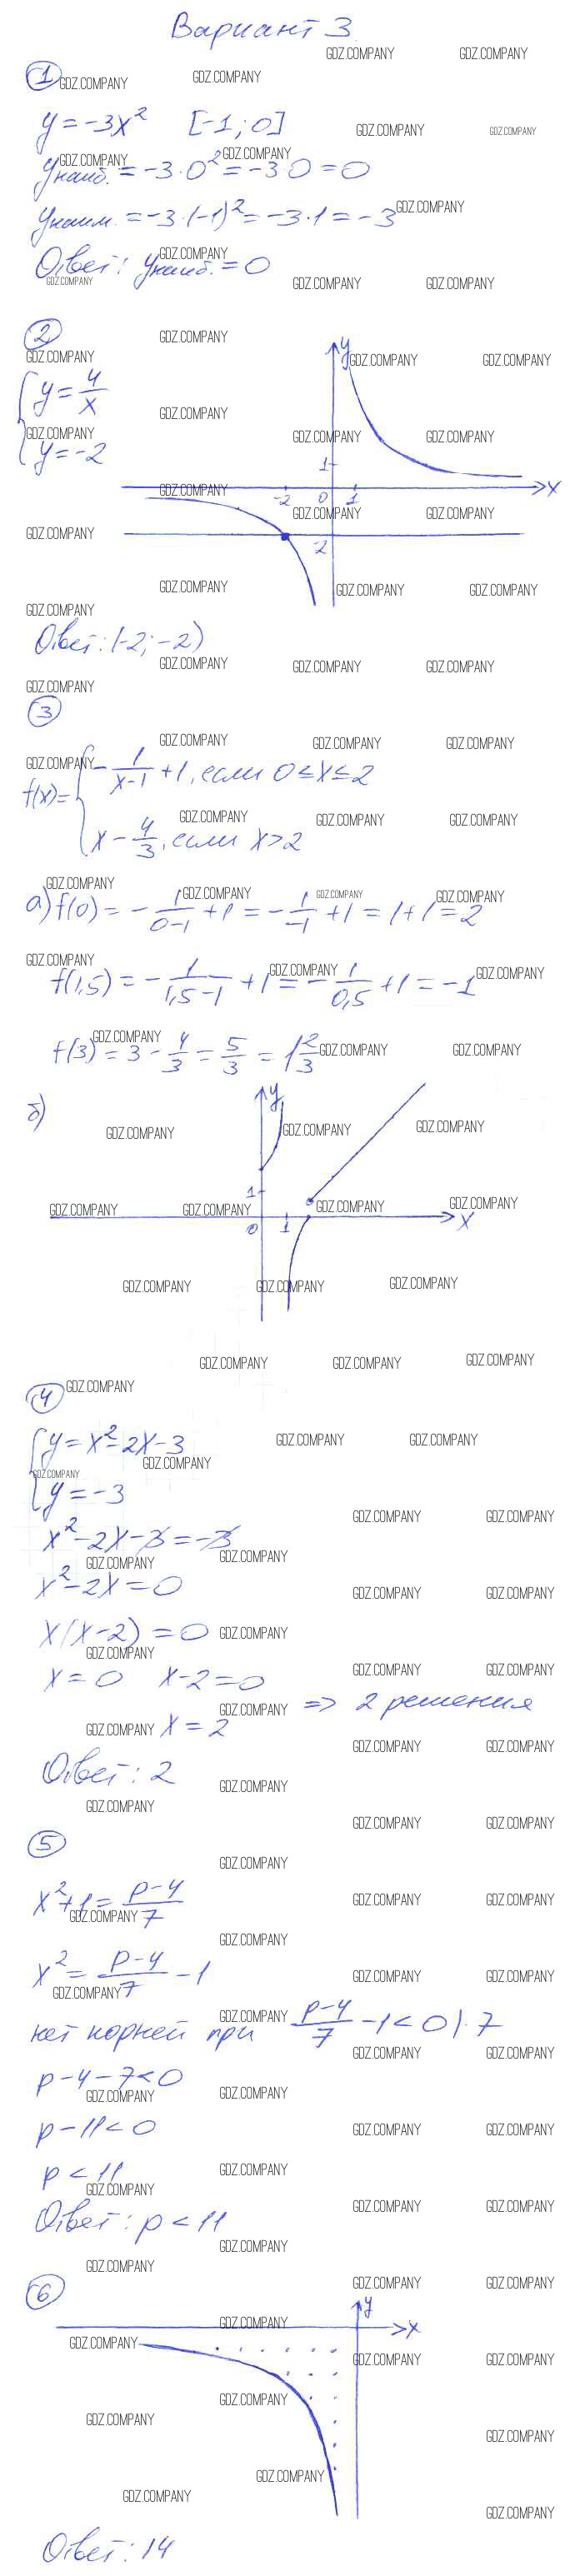 Вариант 3
1
y = -3x² [-1; 0]
yнаиб. = -3·0² = -3·0 = 0
yнаим. = -3·(-1)² = -3·1 = -3
Ответ: yнаиб. = 0
2
{ y = 4/x
y = -2
y
1
-2 0 1 x
-2
Ответ: (-2; -2)
3
f(x) = { -1/(x-1) + 1, если 0 ≤ x ≤ 2
x - 4/3, если x > 2
а) f(0) = -1/(0-1) + 1 = -1/(-1) + 1 = 1 + 1 = 2
f(1,5) = -1/(1,5-1) + 1 = -1/0,5 + 1 = -1
f(3) = 3 - 4/3 = 5/3 = 1 2/3
б)
y
1
0 1 x
4
{ y = x² - 2x - 3
y = -3
x² - 2x - 3 = -3
x² - 2x = 0
x(x-2) = 0
x = 0 x-2 = 0
x = 2 => 2 решения
Ответ: 2
5
x² + 1 = (p-4)/7
x² = (p-4)/7 - 1
нет корней при (p-4)/7 - 1 < 0 |·7
p - 4 - 7 < 0
p - 11 < 0
p < 11
Ответ: p < 11
6
y
x
Ответ: 14
GDZ.COMPANY